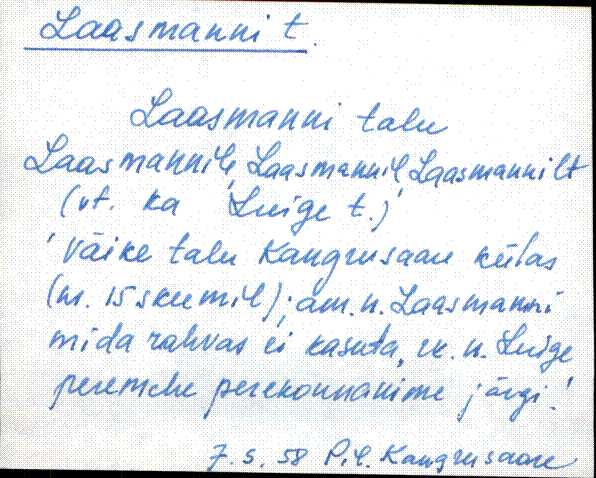 Laasmanni t.
Laasmanni talu
Laasmannile, Laasmannil, Laasmannilt
(vt. ka Luige t.)
'Väike talu Kangrusaare külas
(nr. 15 skeemil); am. n. Laasmanni
mida rahvas ei kasuta, rk. n. Luige
peremehe perekonnanime järgi.'
7. 5. 58 Pil. Kangrusaare